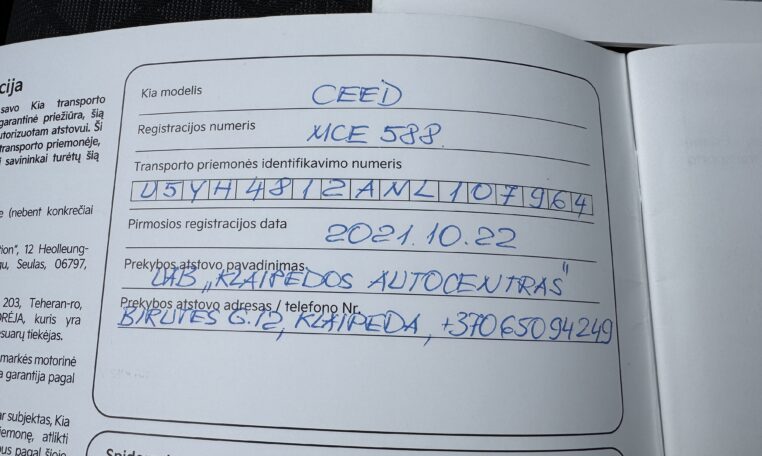 cija
savo Kia transporto
garantinė priežiūra, šią
utorizuotam atstovui. Ši
transporto priemonėje,
savininkai turėtų šią
e (nebent konkrečiai
tion", 12 Heolleung-
gu, Seulas, 06797,
203, Teheran-ro,
ORĖJA, kuris yra
esuarų tiekėjas.
markės motorinė
a garantija pagal
ar subjektas, Kia
iemonę, atlikti
Kia modelis CEED
Registracijos numeris MCE 588
Transporto priemonės identifikavimo numeris
U5YH4812ANL107964
Pirmosios registracijos data 2021.10.22
Prekybos atstovo pavadinimas
UAB „KLAIPĖDOS AUTOCENTRAS"
Prekybos atstovo adresas / telefono Nr.
BIRUTĖS G.12, KLAIPĖDA, +37065094249